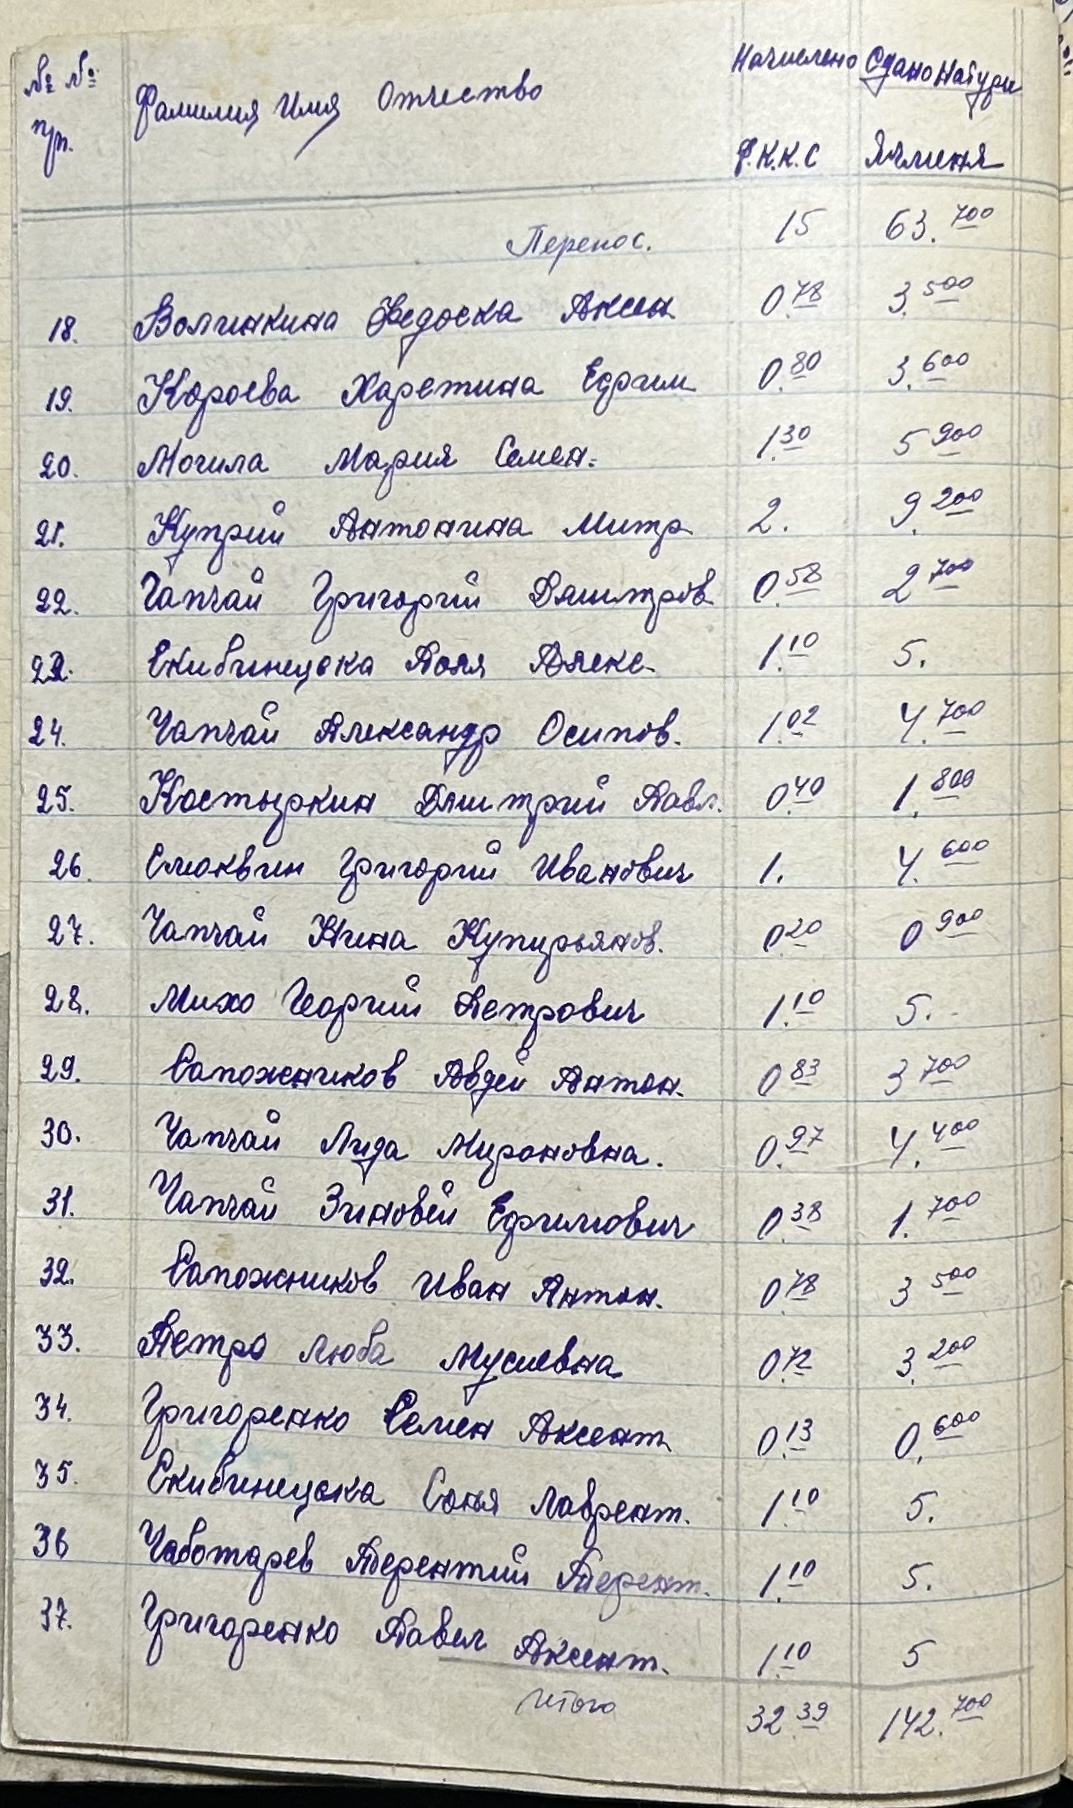 № № Фамилия Имя Отчество Начислено Сдано Натури
пп. Ф.К.К.С Ячменя
Перенос. 15 63.700
18. Волчикина Федоска Аксен 0.78 3.500
19. Караева Харетина Ефрим 0.80 3.600
20. Могила Мария Семен. 1.30 5 900
21. Куприй Антонина Митр 2. 9.200
22. Чапчай Григорий Дмитров 0.58 2 700
23. Скибинецска Поля Алекс 1.10 5.
24. Чапчай Александр Осипов. 1.02 4.700
25. Костыркин Дмитрий Павл. 0.40 1.800
26. Смоквин Григорий Иванович 1. 4.600
27. Чапчай Нина Купирьянов. 0.20 0 900
28. Михо Георгий Петрович 1.10 5.
29. Сапожников Авдей Антон. 0.83 3 700
30. Чапчай Лида Мироновна. 0.97 4.400
31. Чапчай Зиновей Ефимович 0.38 1.700
32. Сапожников Иван Антон. 0.78 3 500
33. Петро Люба Мусиевна 0.72 3.200
34. Григоренко Семен Аксент 0.13 0.600
35. Скибинецска Соня Лаврент. 1.10 5.
36 Чаботарев Терентий Терент. 1.10 5.
37. Григоренко Павел Аксент. 1.10 5
Итого 32.39 142.700